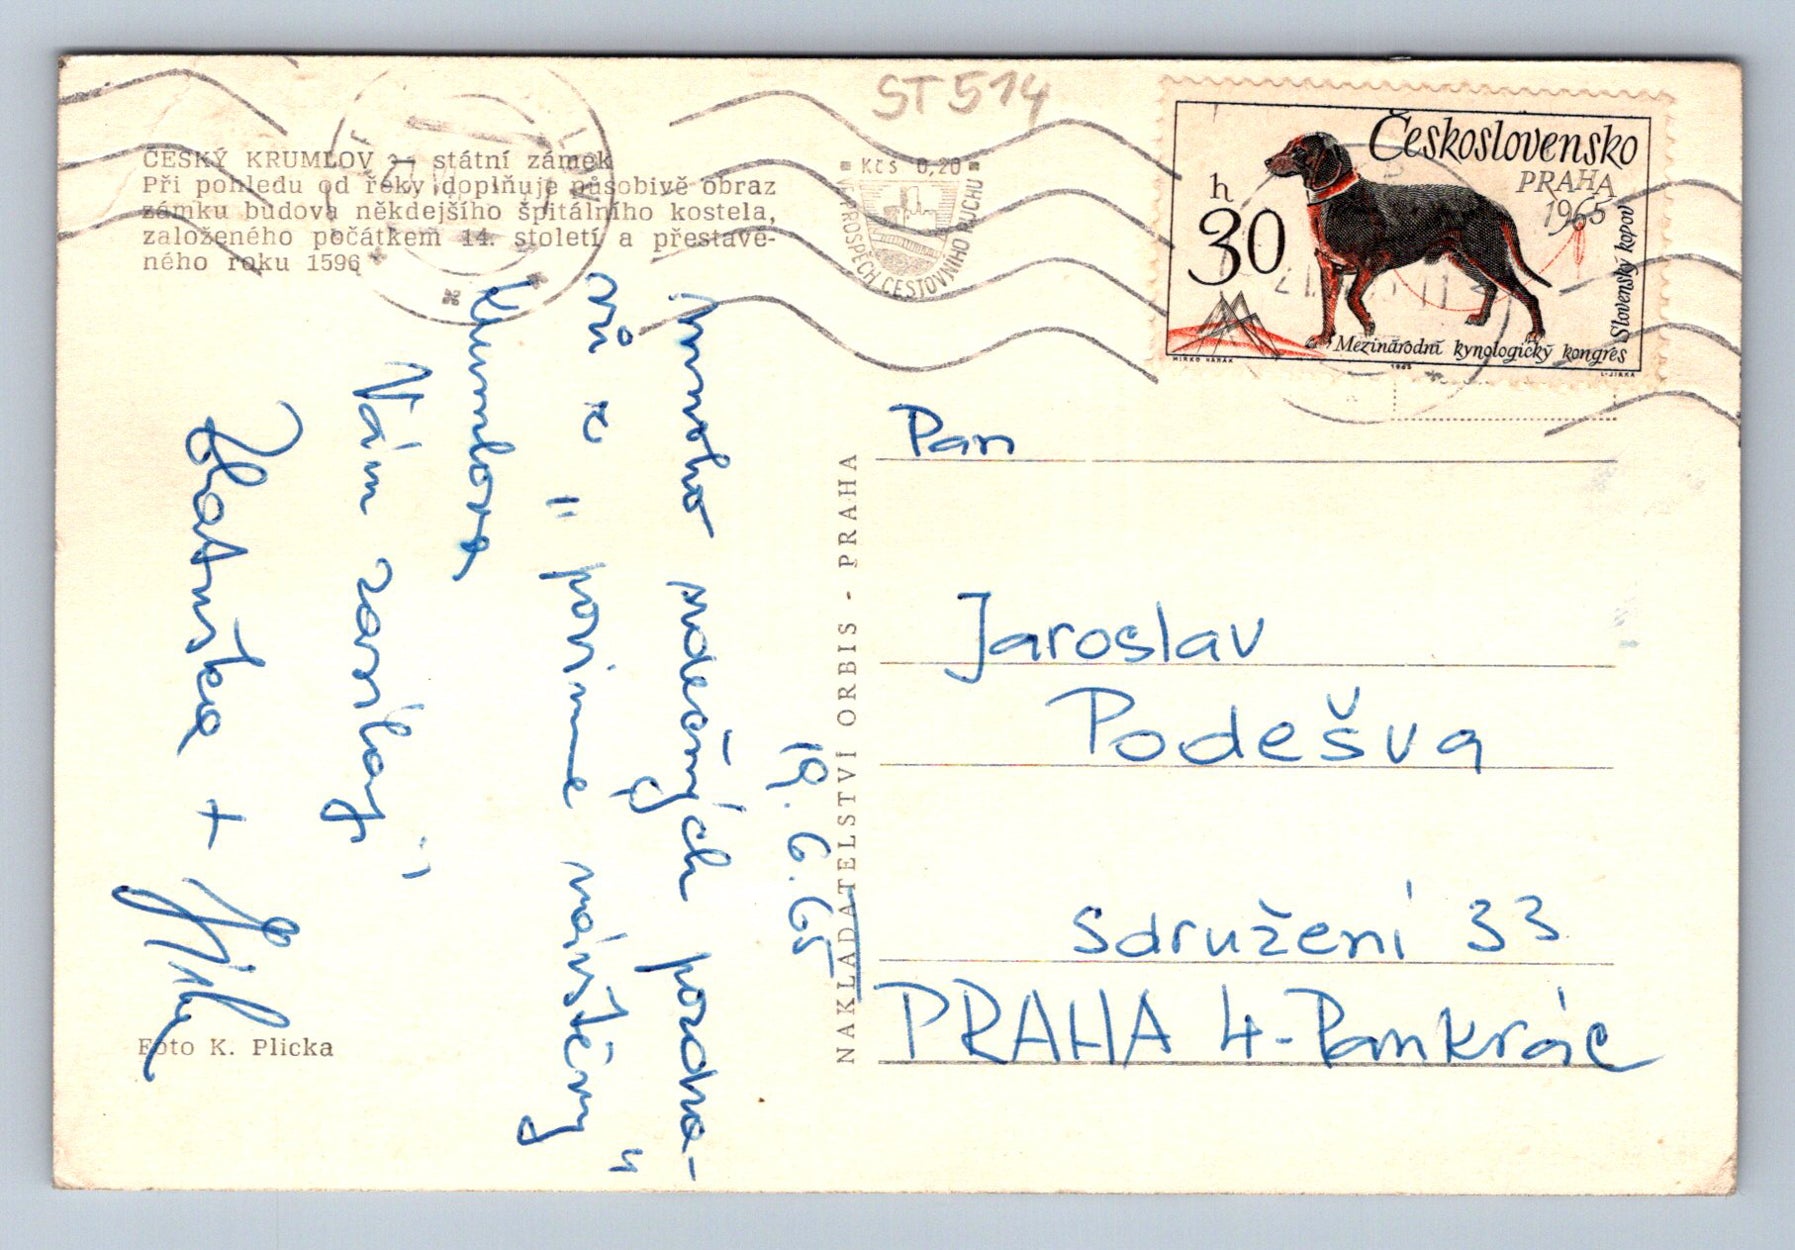 ST 514
ČESKÝ KRUMLOV - státní zámek
Při pohledu od řeky doplňuje působivě obraz
zámku budova někdejšího špitálního kostela,
založeného počátkem 14. století a přestavě-
ného roku 1596
Kčs 0,20
PROSPĚCH CESTOVNÍHO RUCHU
Československo
PRAHA
1965
h
30
Slovenský kopov
Mezinárodní kynologický kongres
MIRKO HANÁK
1965
L. JIRKA
19. 6. 65
mnoho srdečných pozdra-
vů z "posime
Krumlova
Vám zasílají
Blatuška +
Foto K. Plicka
NAKLADATELSTVÍ ORBIS - PRAHA
Pan
Jaroslav
Podešva
Sdružení 33
PRAHA 4-Pankrác